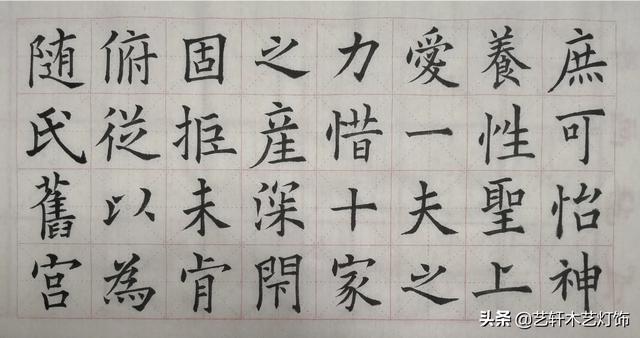 庶可怡神
養性聖上
愛一夫之
力惜十家
之産深閇
固拒未肯
俯從以為
随氏舊宮
头条 @艺轩木艺灯饰